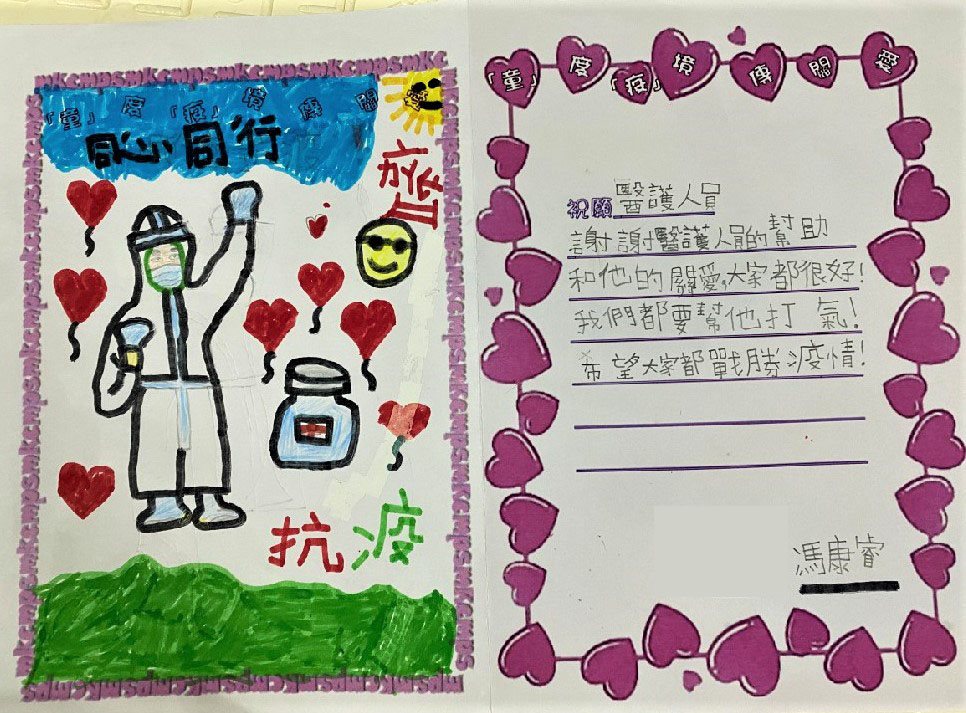 mkcmpsmkcmpsmkcmpsmkcmpsmkc
「童」度「疫」境傳關愛
同心同行
抗疫
「童」度「疫」境傳關愛
祝願醫護人員
謝謝醫護人員的幫助
和他的關愛,大家都很好!
我們都要幫他打氣!
希望大家都戰勝疫情!
馮康睿